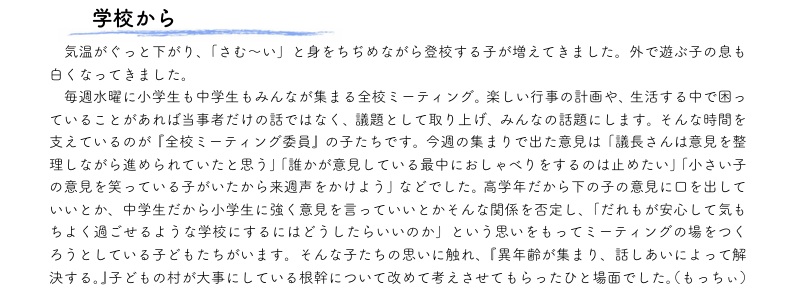 学校から
気温がぐっと下がり、「さむ～い」と身をちぢめながら登校する子が増えてきました。外で遊ぶ子の息も
白くなってきました。
毎週水曜に小学生も中学生もみんなが集まる全校ミーティング。楽しい行事の計画や、生活する中で困っ
ていることがあれば当事者だけの話ではなく、議題として取り上げ、みんなの話題にします。そんな時間を
支えているのが『全校ミーティング委員』の子たちです。今週の集まりで出た意見は「議長さんは意見を整
理しながら進められていたと思う」「誰かが意見している最中におしゃべりをするのは止めたい」「小さい子
の意見を笑っている子がいたから来週声をかけよう」などでした。高学年だから下の子の意見に口を出して
いいとか、中学生だから小学生に強く意見を言っていいとかそんな関係を否定し、「だれもが安心して気も
ちよく過ごせるような学校にするにはどうしたらいいのか」という思いをもってミーティングの場をつく
ろうとしている子どもたちがいます。そんな子たちの思いに触れ、『異年齢が集まり、話しあいによって解
決する。』子どもの村が大事にしている根幹について改めて考えさせてもらったひと場面でした。（もっちぃ）